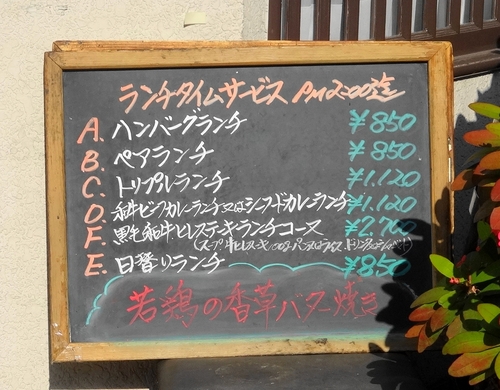 ランチタイムサービス PM2:00迄
A. ハンバーグランチ ¥850
B. ペアランチ ¥850
C. トリプルランチ ¥1.120
D. 和牛ビーフカレーランチ又はシーフドカレーランチ ¥1.120
F. 黒毛和牛ヒレステーキランチコース ¥2.700
E. 日替りランチ ¥850
若鶏の香草バター焼き